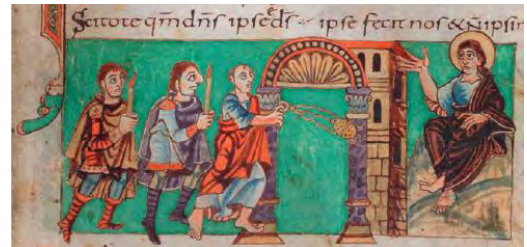 Scitote qm̄ dn̄s ipse ē ds̄ ipse fecit nos & n̄ ipsi